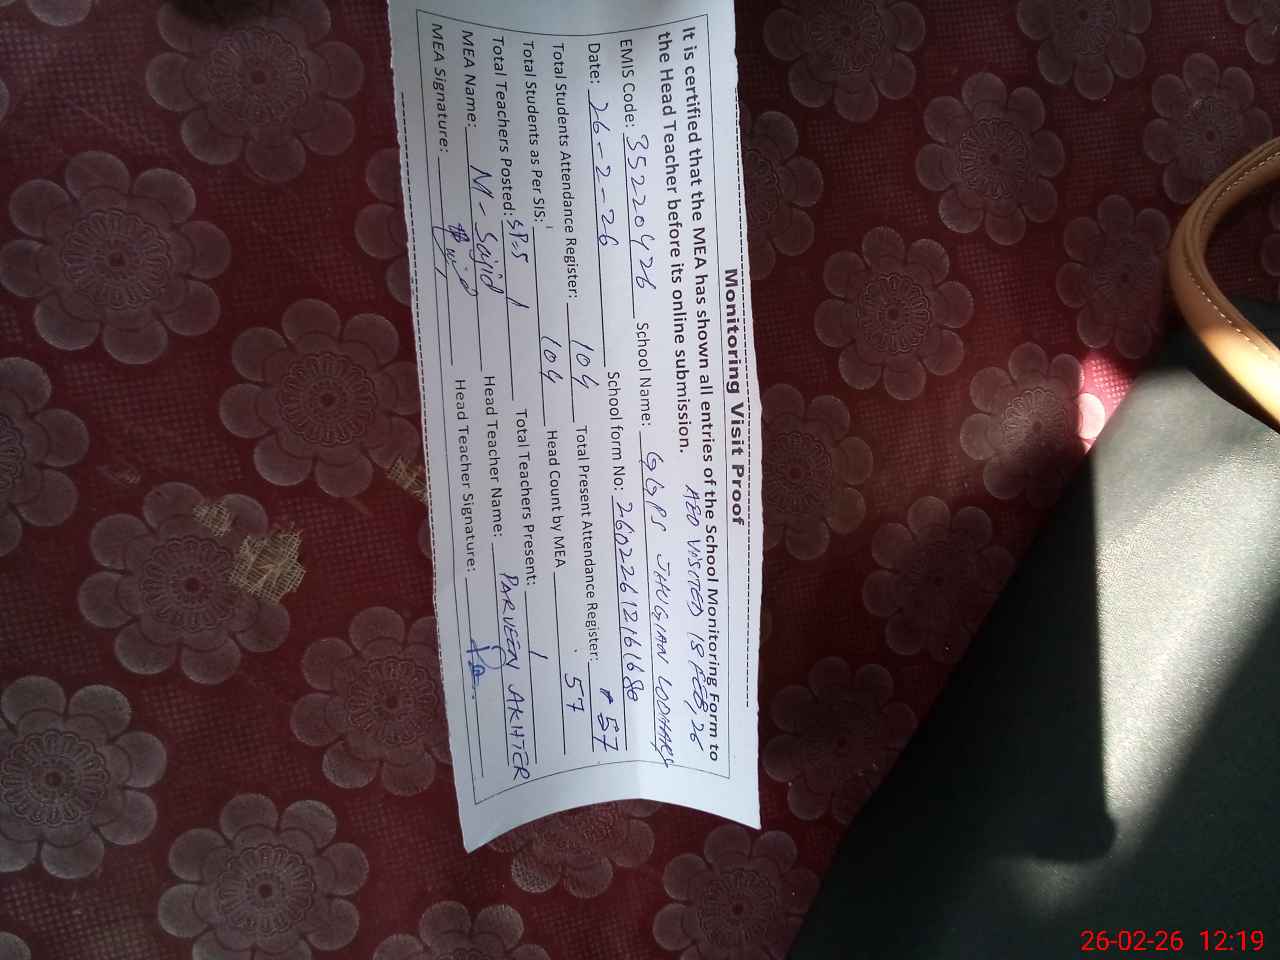 Monitoring Visit Proof
It is certified that the MEA has shown all entries of the School Monitoring Form to
the Head Teacher before its online submission. AEO VISITED 18 FEB, 26
EMIS Code: 35220426 School Name: GGPS JHUGIAN LODHARY
Date: 26-2-26 School form No: 260226121616
Total Students Attendance Register: 104 Total Present Attendance Register: 57
Total Students as Per SIS: 104 Head Count by MEA 57
Total Teachers Posted: 1 Total Teachers Present: 1
MEA Name: M- Sajid Head Teacher Name: PARVEEN AKHTER
MEA Signature: Head Teacher Signature:
26-02-26 12:19